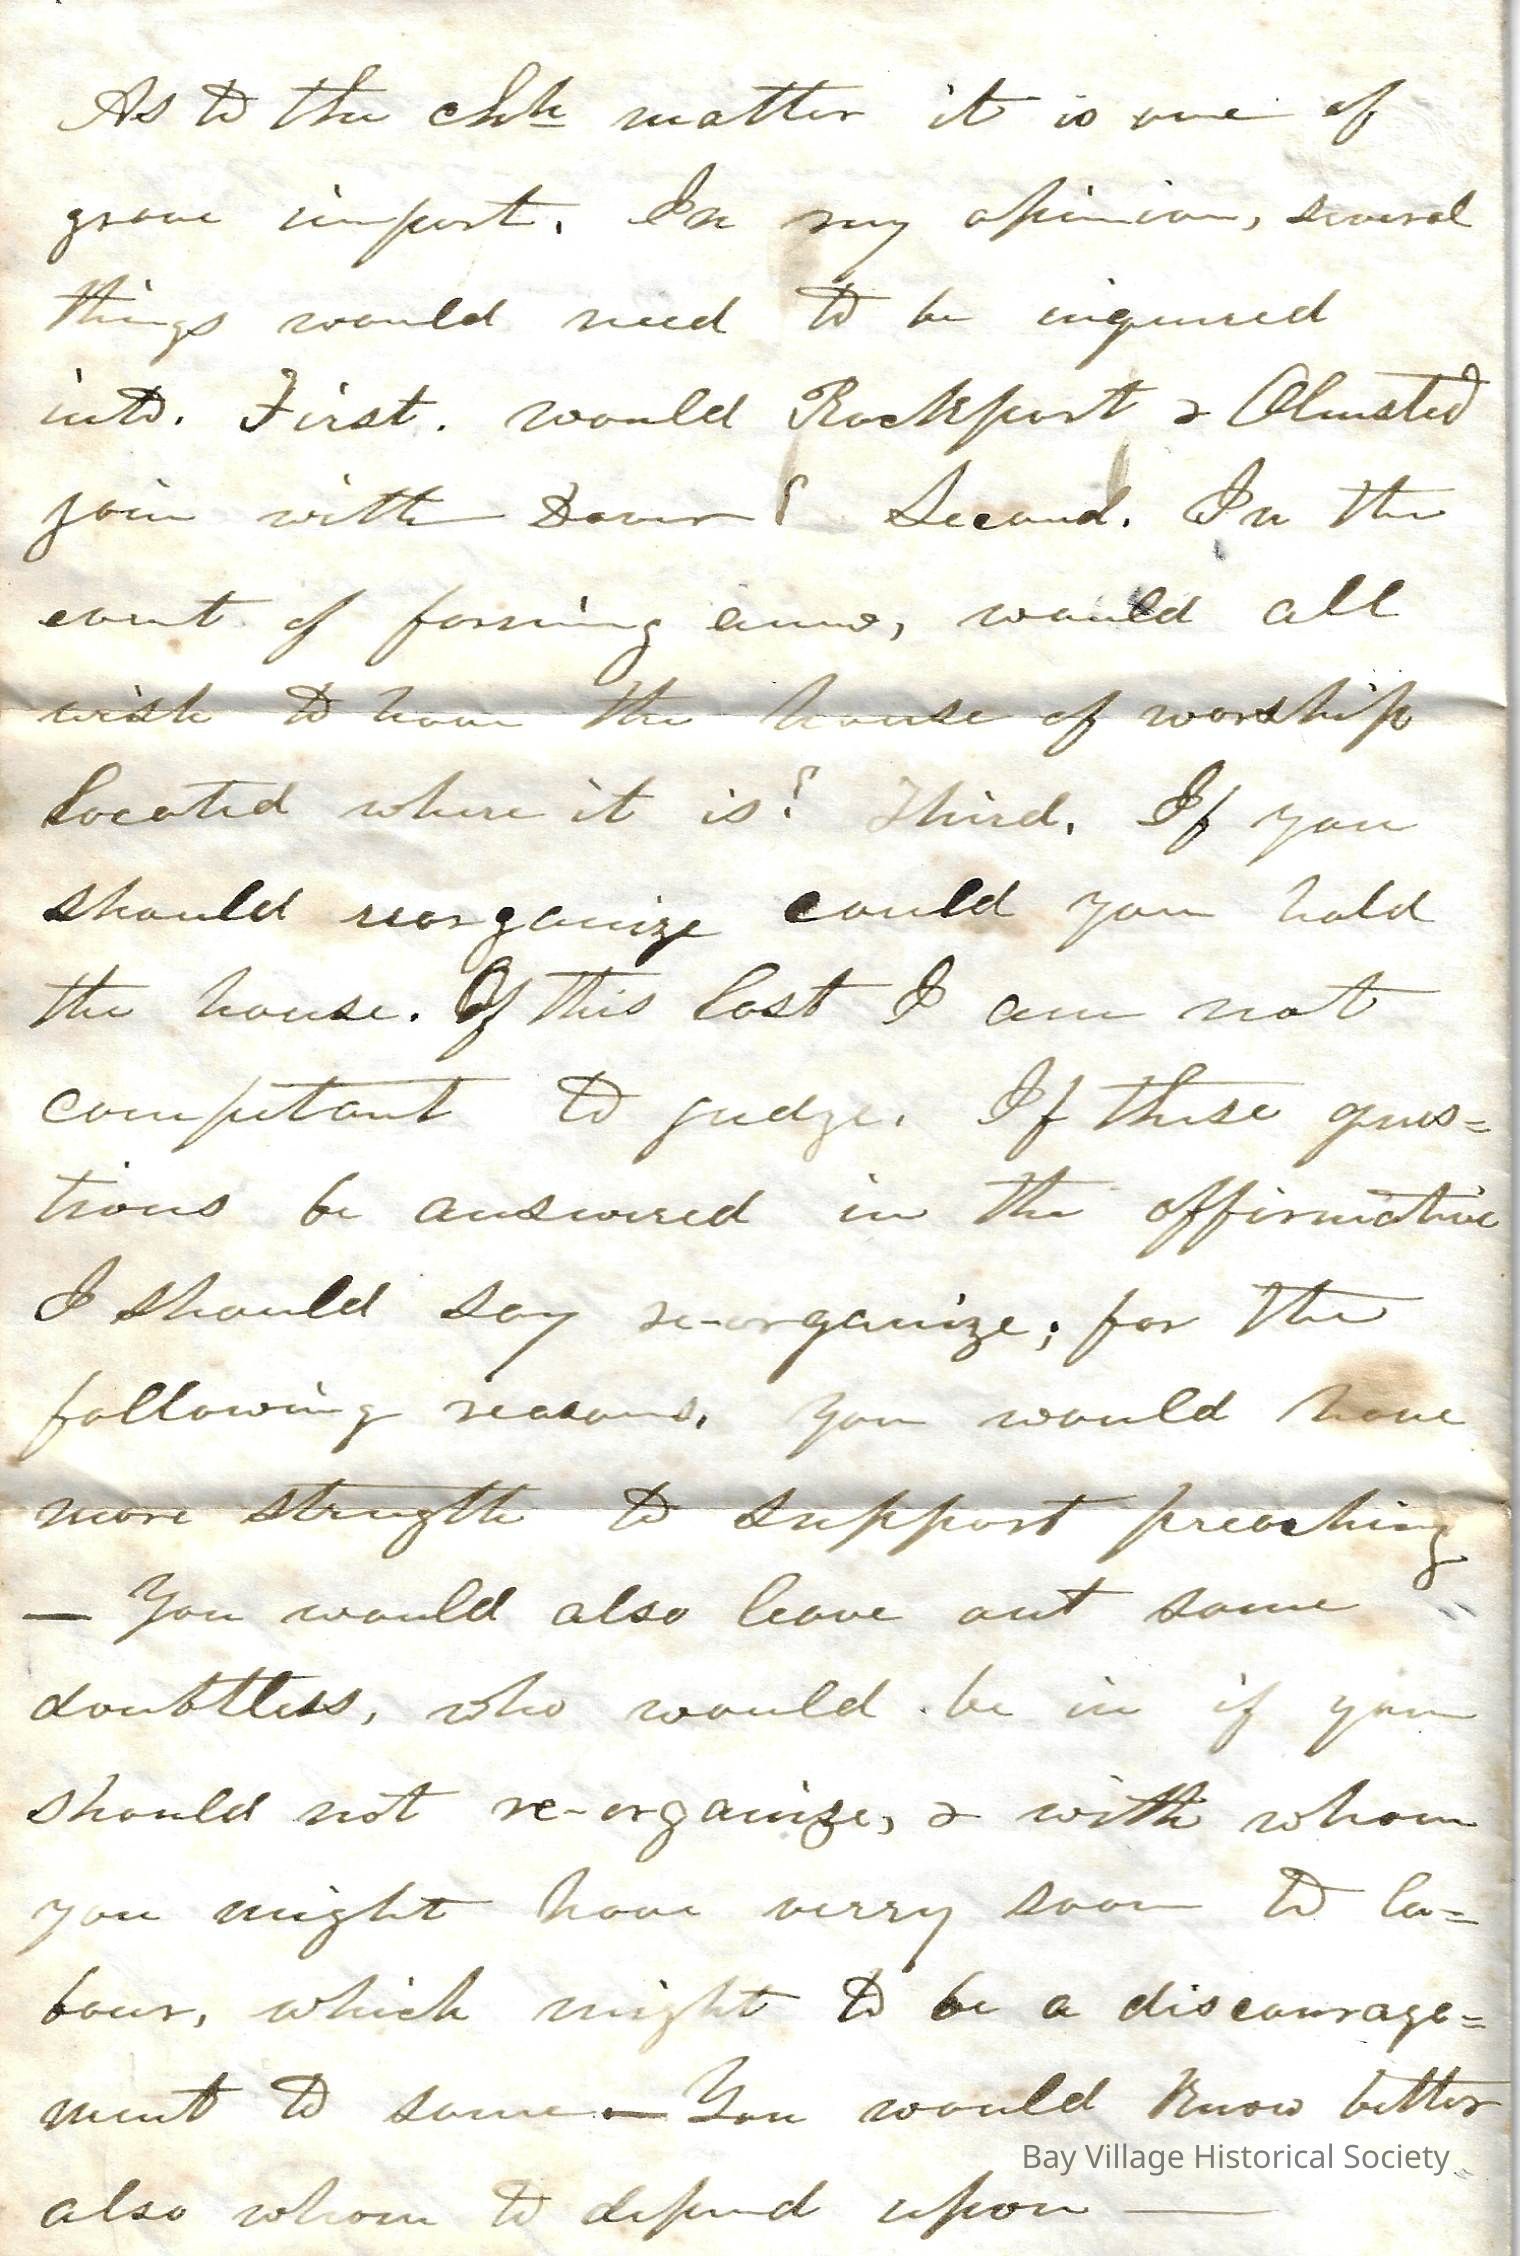 As to the chh matter it is one of
grave import. In my opinion, several
things would need to be inquired
into. First. would Rockport & Olmsted
join with Dover? Second. In the
event of forming anew, would all
wish to have the house of worship
located where it is? Third. If you
should reorganize could you hold
the house. Of this last I am not
competant to judge. If these ques=
tions be answered in the affirmative
I should say re-organize; for the
following reasons. You would have
more strength to support preaching
— You would also leave out some
doubtless, who would be in if you
should not re-organize, & with whom
you might have verry soon to la=
bour, which might to be a discourage=
ment to some — You would know better
also whom to depend upon —
Bay Village Historical Society